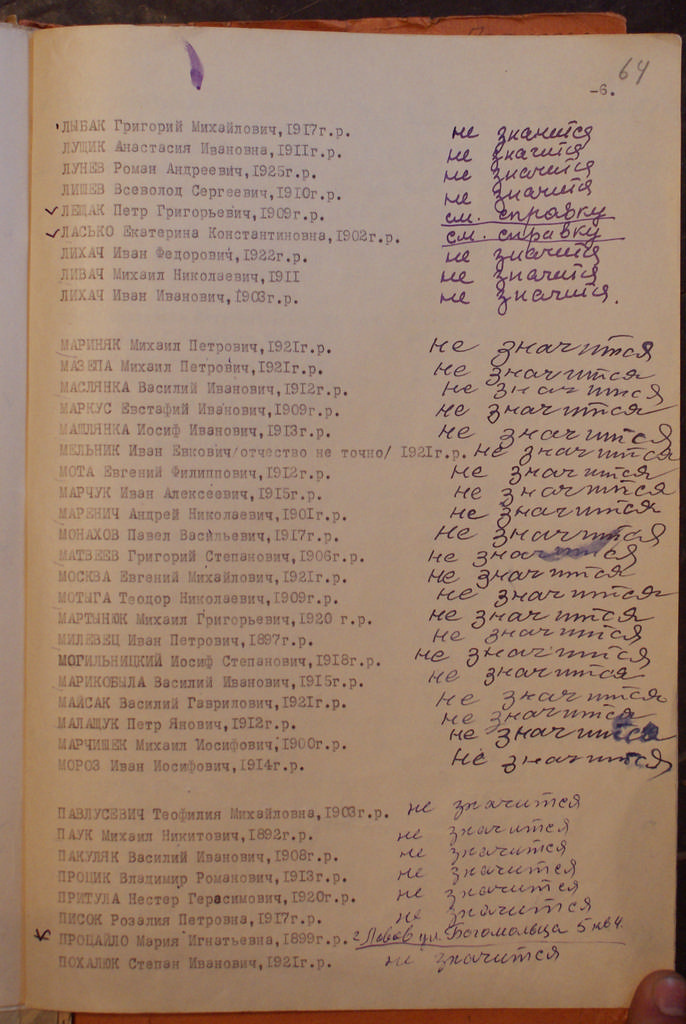 64
-6.
ЛЫБАК Григорий Михайлович,1917г.р. не значится
ЛУЩИК Анастасия Ивановна,1911г.р. не значится
ЛУНЕВ Роман Андреевич,1925г.р. не значится
ЛИШЕВ Всеволод Сергеевич,1910г.р. не значится
ЛЕЩАК Петр Григорьевич,1909г.р. см. справку
ЛАСЬКО Екатерина Константиновна,1902г.р. см. справку
ЛИХАЧ Иван Федорович,1922г.р. не значится
ЛИВАЧ Михаил Николаевич,1911 не значится
ЛИХАЧ Иван Иванович,1903г.р. не значится.
МАРИНЯК Михаил Петрович,1921г.р. не значится
МАЗЕПА Михаил Петрович,1921г.р. не значится
МАСЛЯНКА Василий Иванович,1912г.р. не значится
МАРКУС Евстафий Иванович,1909г.р. не значится
МАШЛЯНКА Иосиф Иванович,1913г.р. не значится
МЕЛЬНИК Иван Евкович/отчество не точно/ 1921г.р. не значится
МОТА Евгений Филиппович,1912г.р. не значится
МАРЧУК Иван Алексеевич,1915г.р. не значится
МАРЕНИЧ Андрей Николаевич,1901г.р. не значится
МОНАХОВ Павел Васильевич,1917г.р. не значится
МАТВЕЕВ Григорий Степанович,1906г.р. не значится
МОСКВА Евгений Михайлович,1921г.р. не значится
МОТЫГА Теодор Николаевич,1909г.р. не значится
МАРТЫНЮК Михаил Григорьевич,1920 г.р. не значится
МИЛЕВЕЦ Иван Петрович,1897г.р. не значится
МОГИЛЬНИЦКИЙ Иосиф Степанович,1918г.р. не значится
МАРИКОБЫЛА Василий Иванович,1915г.р. не значится
МАЙСАК Василий Гаврилович,1921г.р. не значится
МАЛАЩУК Петр Янович,1912г.р. не значится
МАРЧИШЕК Михаил Иосифович,1900г.р. не значится
МОРОЗ Иван Иосифович,1914г.р. не значится
ПАВЛУСЕВИЧ Теофилия Михайловна,1903г.р. не значится
ПАУК Михаил Никитович,1892г.р. не значится
ПАКУЛЯК Василий Иванович,1908г.р. не значится
ПРОЦИК Владимир Романович,1913г.р. не значится
ПРИТУЛА Нестер Герасимович,1920г.р. не значится
ПИСОК Розалия Петровна,1917г.р. не значится
ПРОЦАЙЛО Мария Игнатьевна,1899г.р. г Львов ул. Богомольца 5 кв 4.
ПОХАЛЮК Степан Иванович,1921г.р. не значится